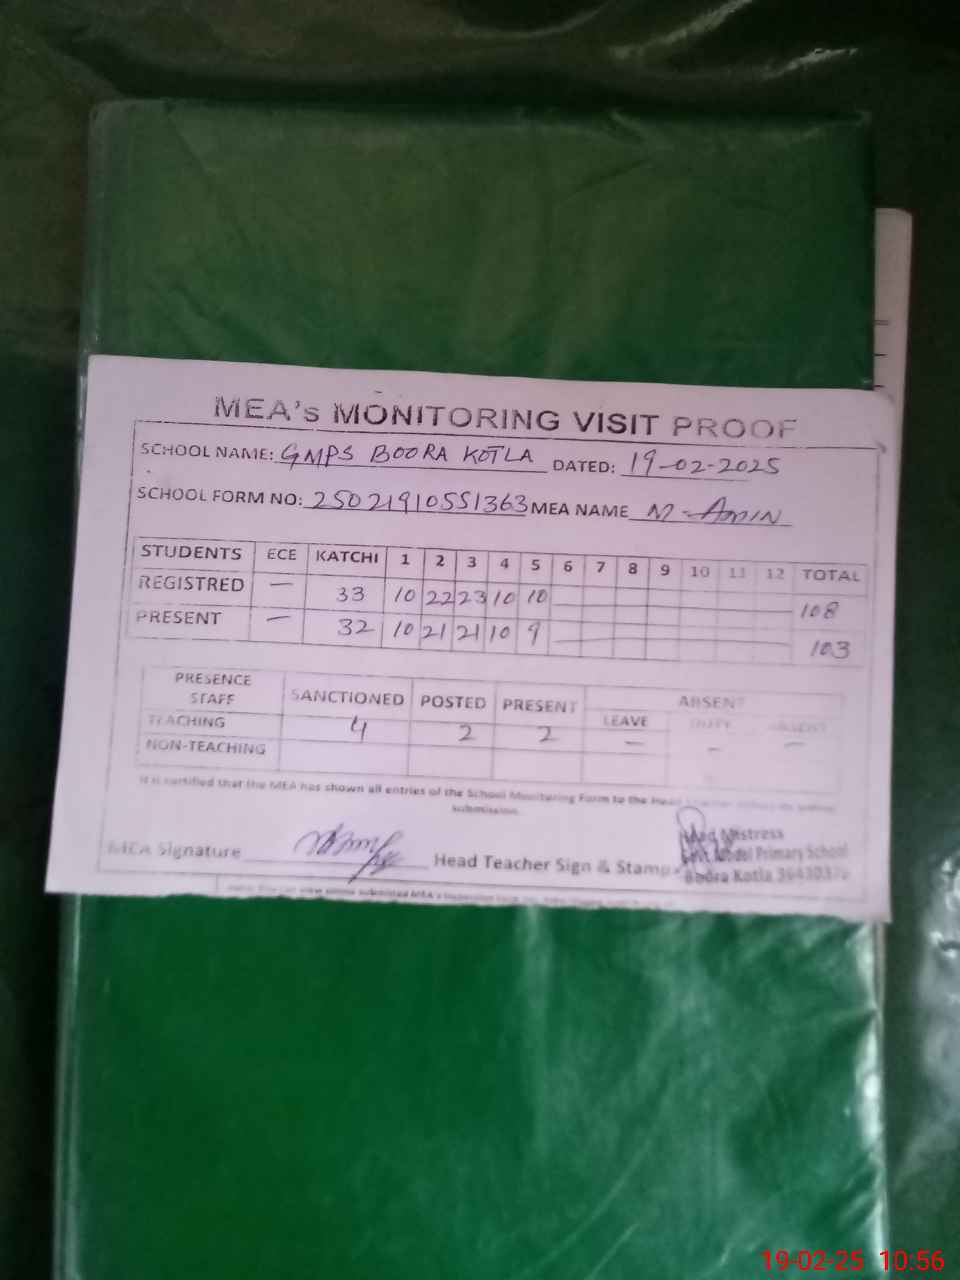 MEA's MONITORING VISIT PROOF
SCHOOL NAME: GMPS BOORA KOTLA DATED: 19-02-2025
SCHOOL FORM NO: 25021910551363 MEA NAME M-AMIN
STUDENTS ECE KATCHI 1 2 3 4 5 6 7 8 9 10 11 12 TOTAL
REGISTRED — 33 10 22 23 10 10 108
PRESENT — 32 10 21 21 10 9 103
PRESENCE STAFF SANCTIONED POSTED PRESENT ABSENT
LEAVE DUTY
TEACHING 4 2 2 — – —
NON-TEACHING
It is certified that the MEA has shown all entries of the School Monitoring Form to the Head Teacher
submission.
MEA Signature Head Teacher Sign & Stamp
Head Mistress
Govt. Model Primary School
Boora Kotla
19-02-25 10:56